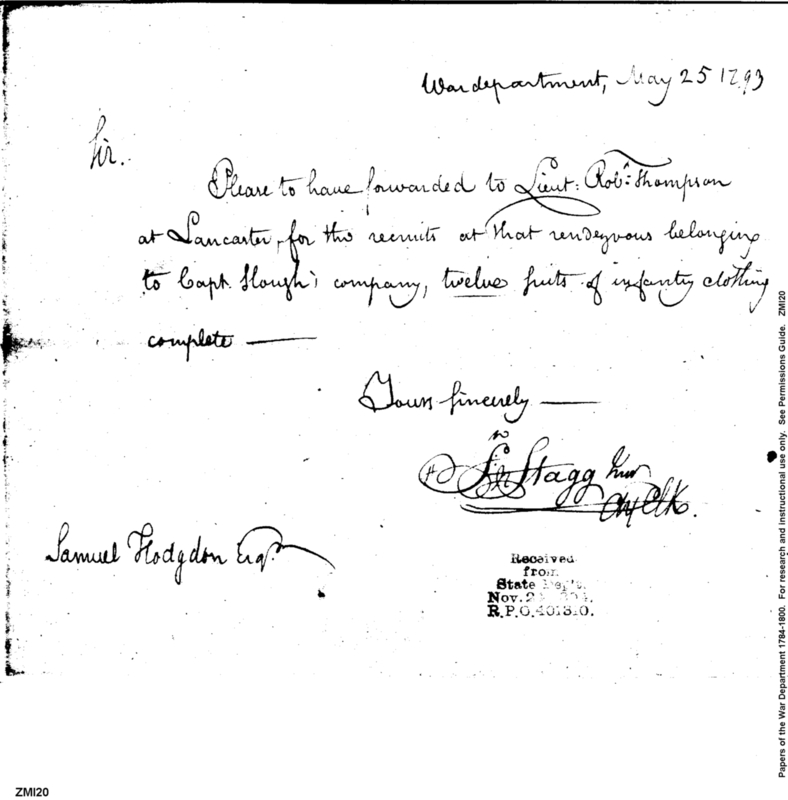 War department, May 25 1793
Sir.
Please to have forwarded to Lieut: Robt. Thompson
at Lancaster, for the recruits at that rendezvous belonging
to Capt. Slough's company, twelve suits of infantry clothing
complete —
Yours sincerely —
Jno Stagg Junr
Chf Clk.
Samuel Hodgdon Esqr.
Received
from
State Dep't.
Nov. 2
R.P.O. 401310.
Papers of the War Department 1784-1800. For research and instructional use only. See Permissions Guide. ZMI20
ZMI20